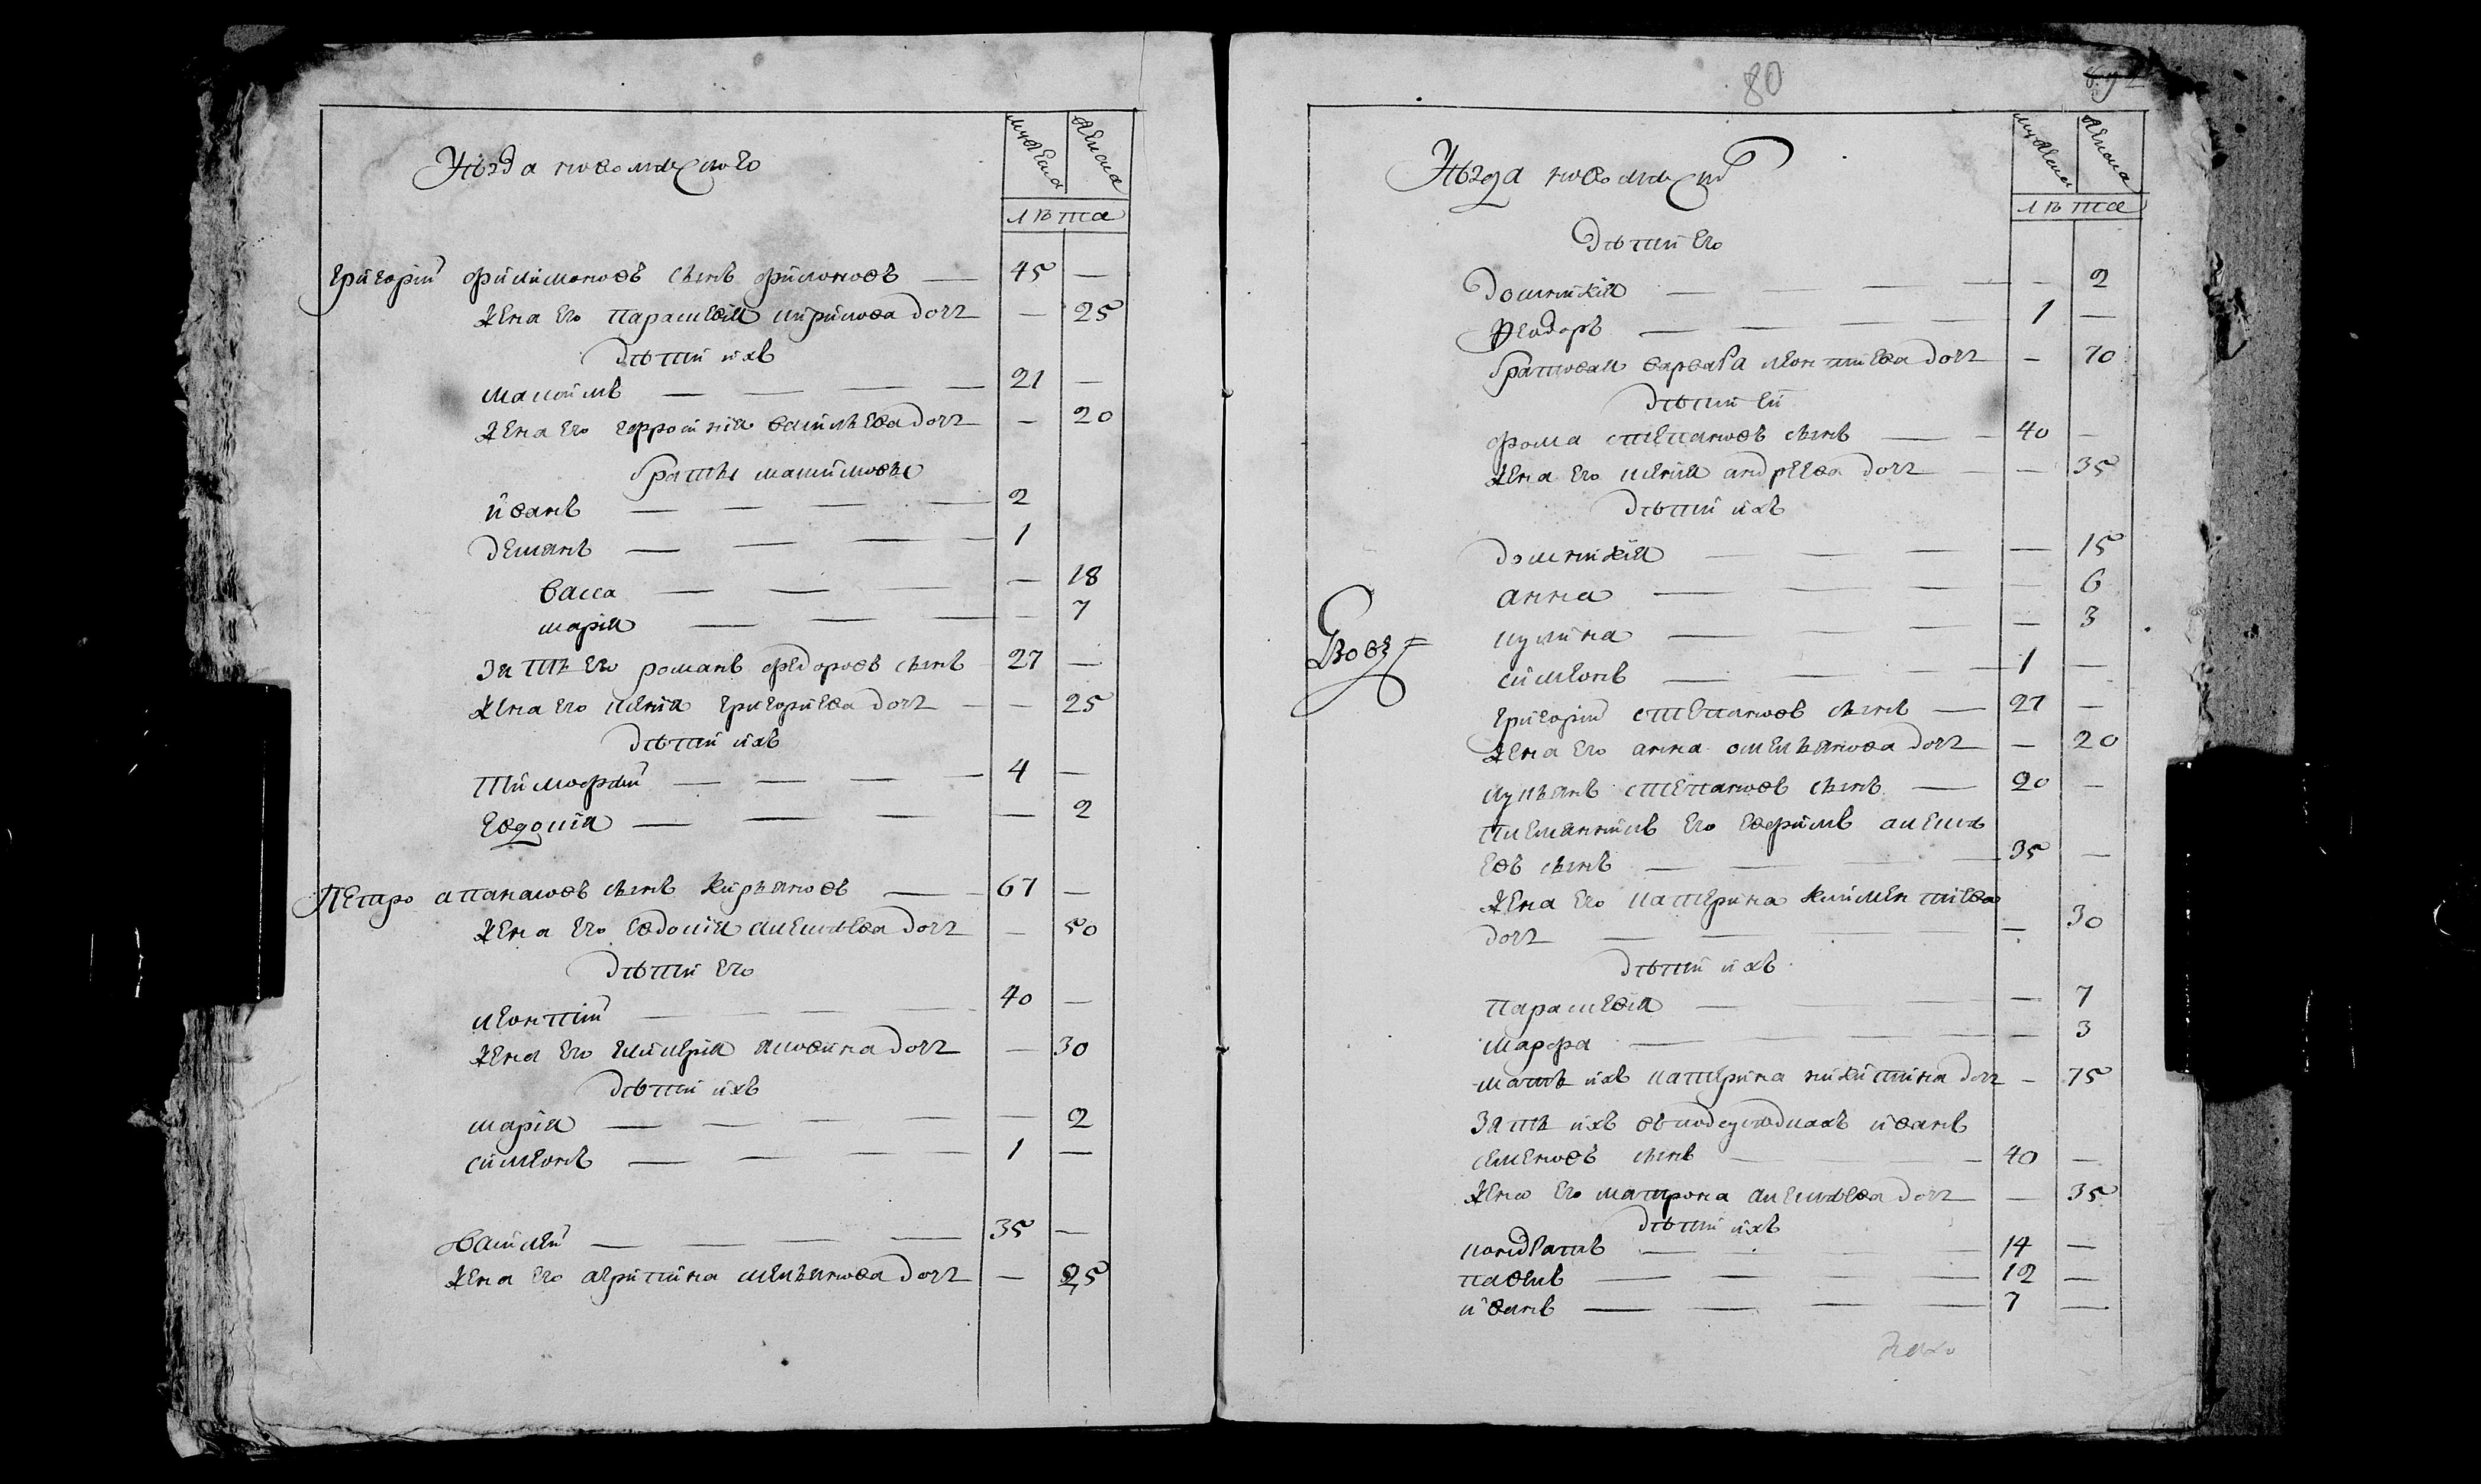 Уѣзда новомѣского
мужеска
женска
лѣта
григорий филимоновъ сынъ филоновъ — 45 —
жена его параскевiя кирикова дочь — 25
дѣти ихъ
максимъ — 21 —
жена его еффросинiя василъева дочь — 20
браты максимовы
иванъ — 2
демянъ — 1
васса — 18
марiя — 7
зять его романъ федоровъ сынъ 27 —
жена его ксенiя григориева дочь — 25
дѣти ихъ
тимофѣй — 4 —
евдокiя — 2
Петро апанасовъ сынъ кирьяновъ — 67 —
жена его евдокiя алексѣева дочь — 50
дѣти его
леонтiй 40 —
жена его гликерiя яковлина дочь — 30
дѣти ихъ
марiя — 2
симеонъ — 1 —
василей — 35 —
жена его агрипина емельянова дочь — 25
80
Уѣзда новомѣск
мужеска
женска
лѣта
дѣти его
домникiя — 2
Феодоръ — 1 —
братовая варвара леонтиева дочь — 70
дѣти ей
фома степановъ сынъ — 40 —
жена его ксенiя андреева дочь — 35
дѣти ихъ
домникiя — 15
анна — 6
акулина — 3
симеонъ — 1 —
григорiй степановъ сынъ — 27 —
жена его анна омельянова дочь — 20
лукьянъ степановъ сынъ — 20 —
племянникъ его ефимъ алексѣ
евъ сынъ — 35 —
жена его катерина климентiева
дочь — 30
дѣти ихъ
параскевiя — 7
марфа — 3
мать ихъ катерина никитина дочь — 75
зять ихъ въ подсуседкахъ иванъ
семеновъ сынъ — 40 —
жена его матрона алексѣева дочь — 35
дѣти ихъ
кондратъ — 14 —
павелъ — 12 —
иванъ — 7 —